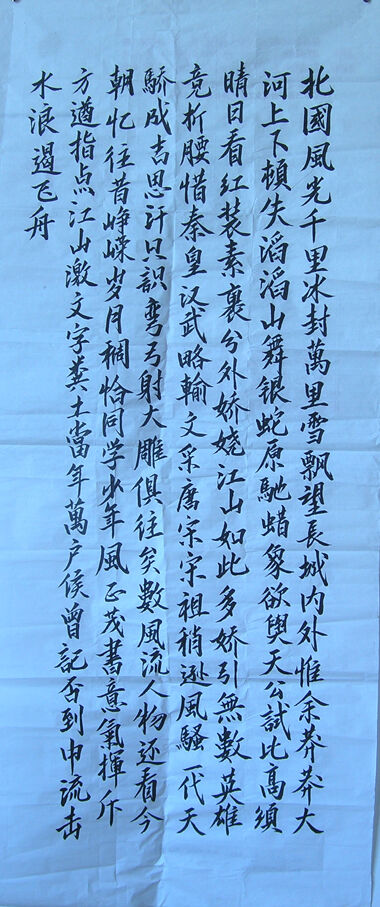 北國風光千里冰封萬里雪飄望長城内外惟余莽莽大
河上下頓失滔滔山舞银蛇原馳蜡象欲與天公試比高須
晴日看红装素裹分外娇娆江山如此多娇引無數英雄
竞折腰惜秦皇汉武略輸文采唐宗宋祖稍逊風騷一代天
驕成吉思汗只識弯弓射大雕俱往矣數風流人物还看今
朝忆往昔峥嵘岁月稠恰同学少年風正茂書意氣揮斥
方遒指点江山激文字糞土當年萬户侯曾記否到中流击
水浪遏飞舟